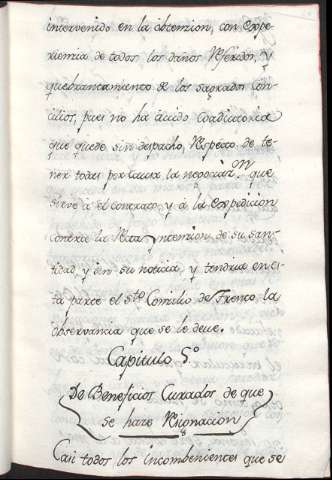 intervenido en la obtenzion, con expe-
riemzia de todos los daños referidos, y
quebrantamiento de los sagrados Con-
cilios, pues no ha avido Coadiutoria
que quede sin despacho, respecto de te-
ner todas por causa la negociaz.on que
sirve á el contrato, y á la expedicion
contra la recta yntenzion de su san-
tidad, y sin su noticia, y tendria en es-
ta parte el s.to Comzilio de Trento, la
observancia que se le deve.
Capitulo 5.º
De Beneficios Curados de que
se haze Resignacion
Casi todos los imcombenientes que se